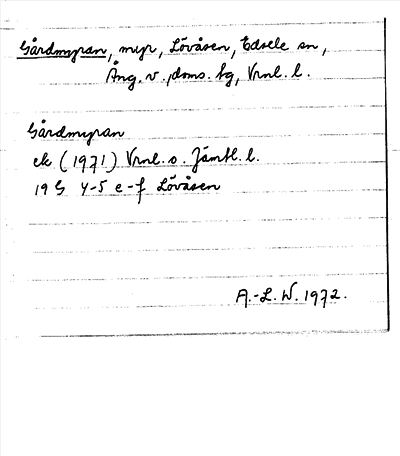 Gårdmyran, myr, Lövåsen, Edsele sn,
Ång. v., doms. tg, Vrnl. l.
Gårdmyran
ek (1971) Vrnl. o. Jämtl. l.
19 G 4-5 e-f Lövåsen
A.-L. W. 1972.